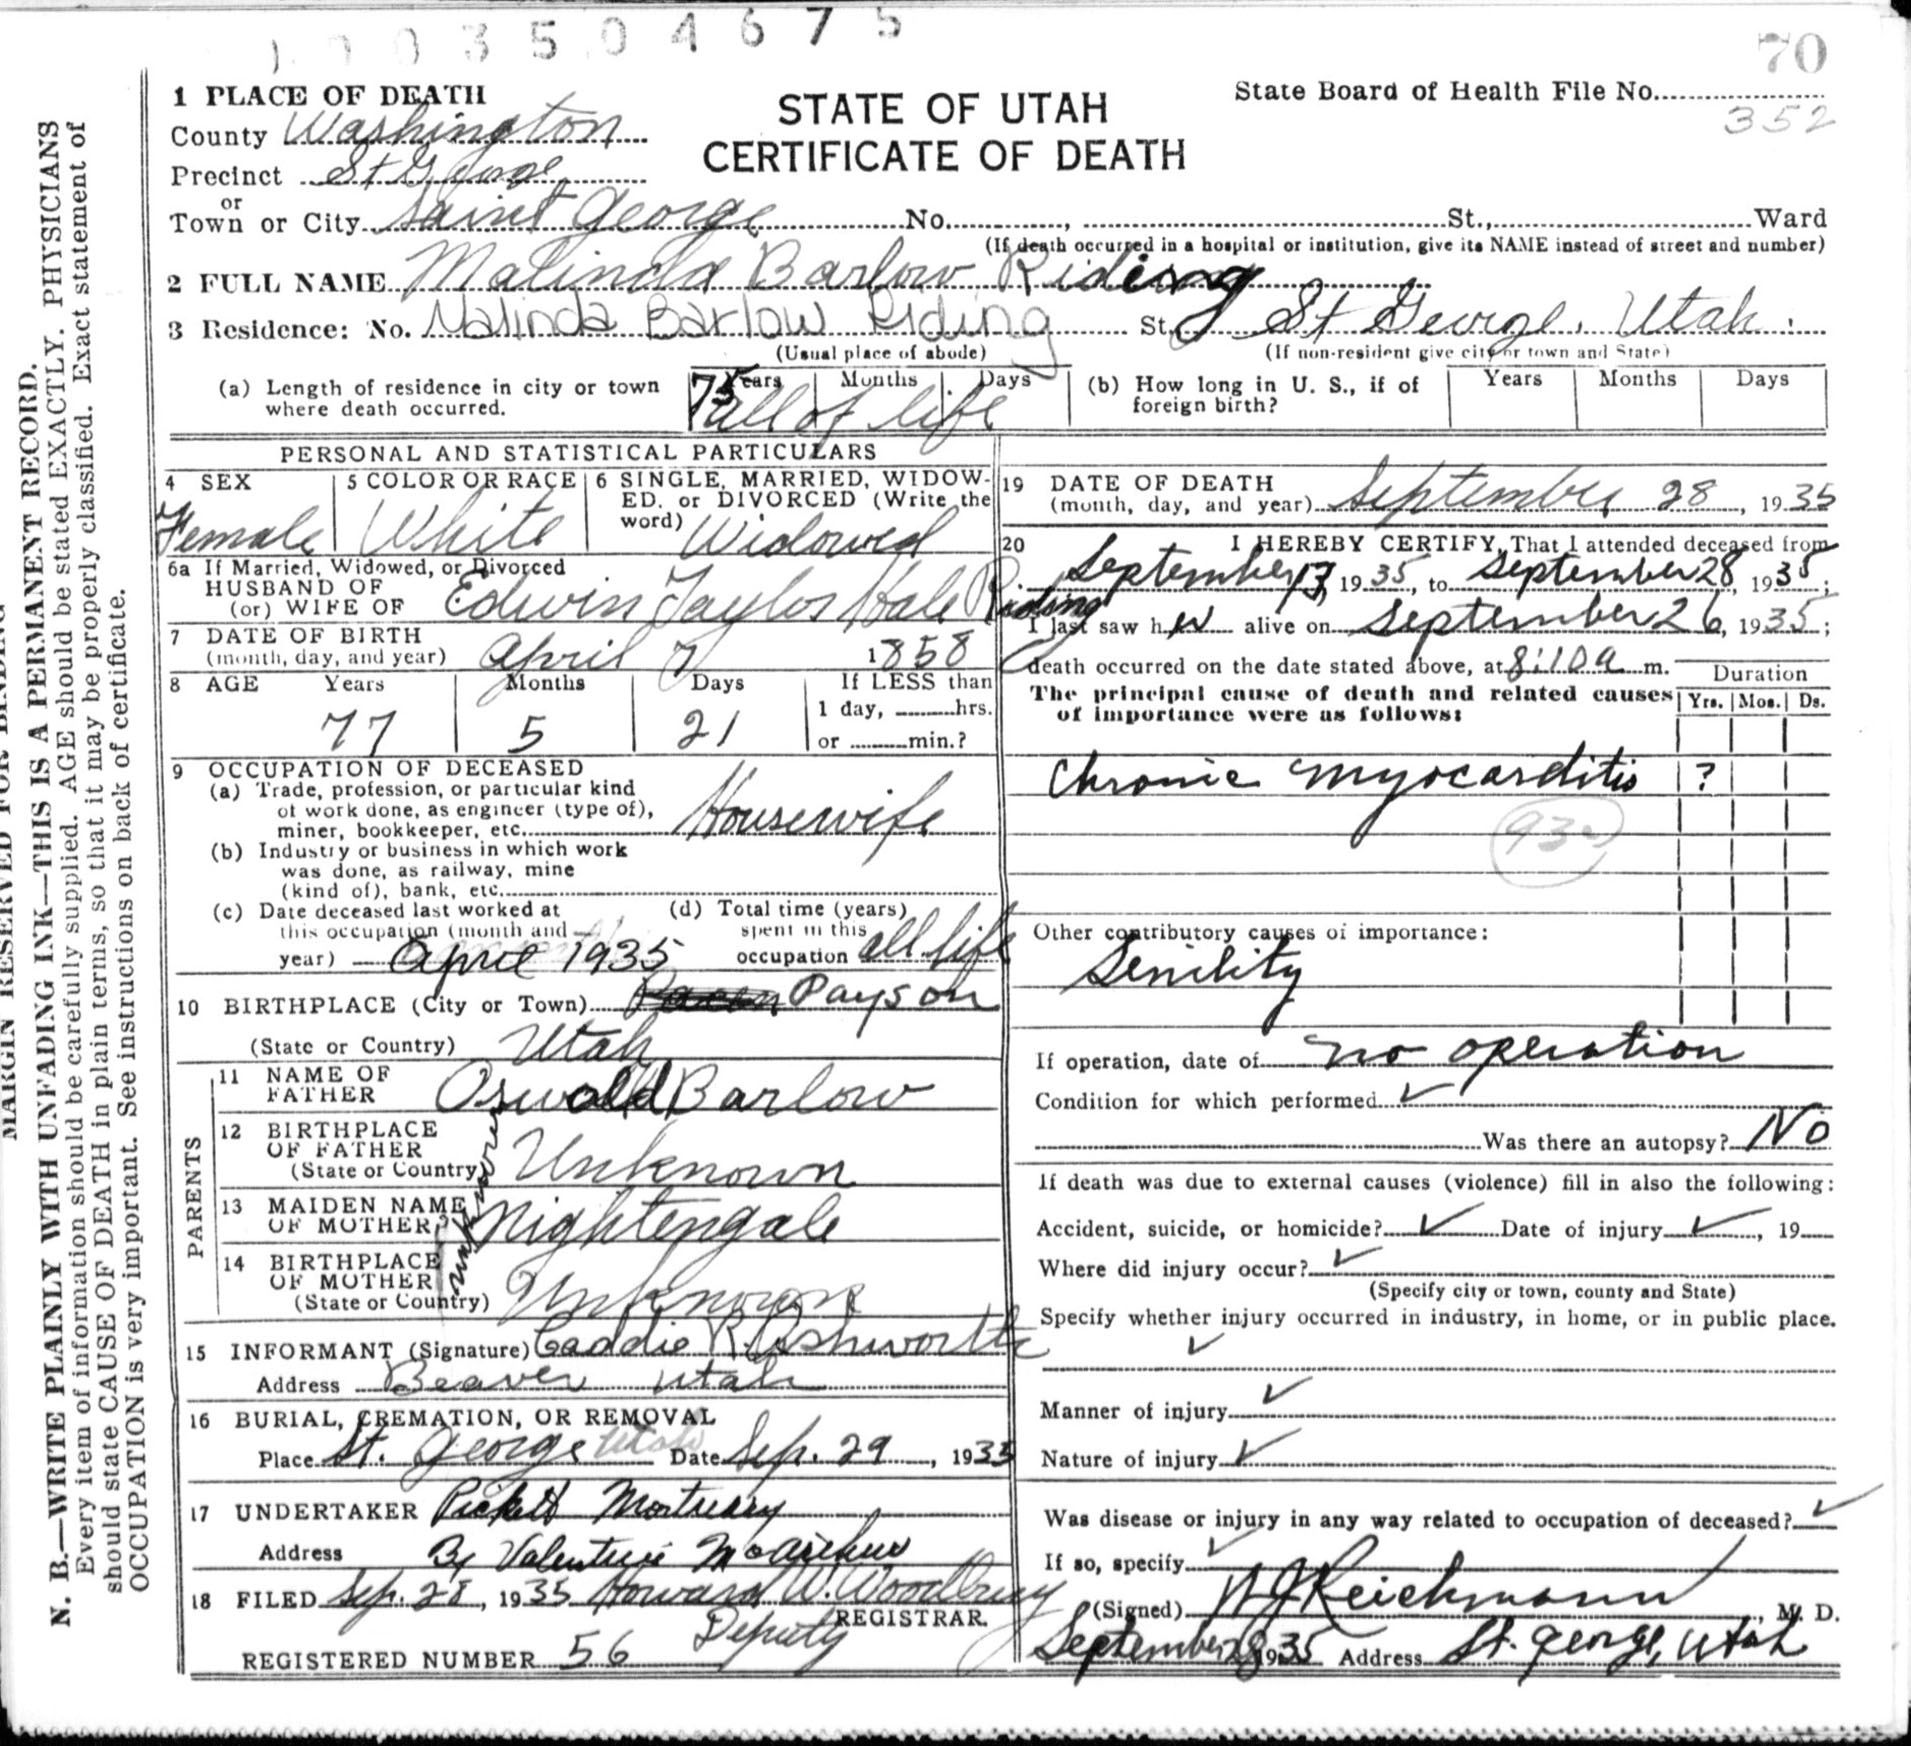 1003504675
70
1 PLACE OF DEATH
STATE OF UTAH
CERTIFICATE OF DEATH
State Board of Health File No.
352
County Washington
Precinct St George
or
Town or City Saint George No. , St., Ward
(If death occurred in a hospital or institution, give its NAME instead of street and number)
2 FULL NAME Malinda Barlow Riding
3 Residence: No. Malinda Barlow Riding St. St George, Utah.
(Usual place of abode) (If non-resident give city or town and State)
(a) Length of residence in city or town where death occurred. 75 Years Months Days All of life
(b) How long in U. S., if of foreign birth? Years Months Days
PERSONAL AND STATISTICAL PARTICULARS
4 SEX Female
5 COLOR OR RACE White
6 SINGLE, MARRIED, WIDOWED, or DIVORCED (Write the word) Widowed
6a If Married, Widowed, or Divorced
HUSBAND OF
(or) WIFE OF Edwin Taylor Hale Riding
7 DATE OF BIRTH
(month, day, and year) April 7 1858
8 AGE Years Months Days If LESS than
77 5 21 1 day, hrs.
or min.?
9 OCCUPATION OF DECEASED
(a) Trade, profession, or particular kind
of work done, as engineer (type of),
miner, bookkeeper, etc. Housewife
(b) Industry or business in which work
was done, as railway, mine
(kind of), bank, etc.
(c) Date deceased last worked at
this occupation (month and
year) April 1935
(d) Total time (years)
spent in this
occupation all life
10 BIRTHPLACE (City or Town) Payson
(State or Country) Utah
PARENTS
11 NAME OF
FATHER Oswald Barlow
12 BIRTHPLACE
OF FATHER
(State or Country) Unknown
13 MAIDEN NAME
OF MOTHER unknown Nightengale
14 BIRTHPLACE
OF MOTHER
(State or Country) Unknown
15 INFORMANT (Signature) Caddie R. Ashworth
Address Beaver Utah
16 BURIAL, CREMATION, OR REMOVAL
Place St. George Utah Date Sep. 29, 1935
17 UNDERTAKER Pickett Mortuary
Address By Valentine
18 FILED Sep. 28, 1935 Howard W. Woodbury
Deputy REGISTRAR.
REGISTERED NUMBER 56
19 DATE OF DEATH
(month, day, and year) September 28, 1935
20 I HEREBY CERTIFY, That I attended deceased from
September 13, 1935, to September 28, 1935;
I last saw her alive on September 26, 1935;
death occurred on the date stated above, at 8:10 a m.
The principal cause of death and related causes
of importance were as follows:
Duration
Yrs. Mos. Ds.
Chronic myocarditis ?
Other contributory causes of importance:
Senility
If operation, date of no operation
Condition for which performed ✓
Was there an autopsy? No
If death was due to external causes (violence) fill in also the following:
Accident, suicide, or homicide? ✓ Date of injury ✓, 19
Where did injury occur? ✓
(Specify city or town, county and State)
Specify whether injury occurred in industry, in home, or in public place.
✓
Manner of injury ✓
Nature of injury ✓
Was disease or injury in any way related to occupation of deceased? ✓
If so, specify ✓
(Signed) W J Reichmann, M. D.
September 28 1935 Address St. George, Utah
MARGIN RESERVED FOR BINDING
N. B.—WRITE PLAINLY WITH UNFADING INK—THIS IS A PERMANENT RECORD.
Every item of information should be carefully supplied. AGE should be stated EXACTLY. PHYSICIANS
should state CAUSE OF DEATH in plain terms, so that it may be properly classified. Exact statement of
OCCUPATION is very important. See instructions on back of certificate.